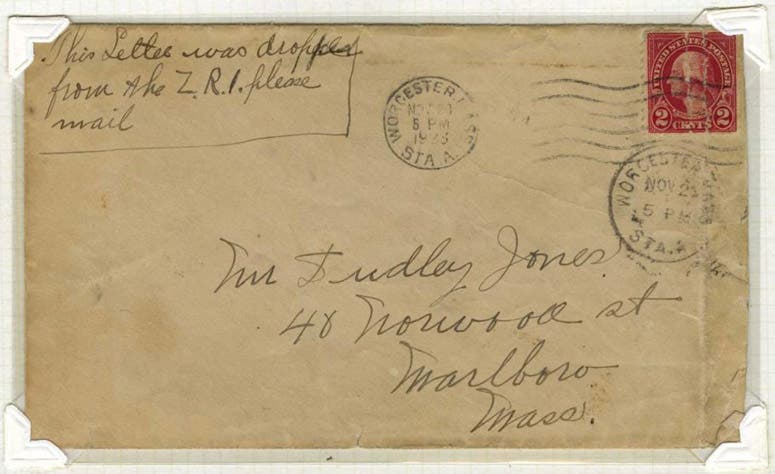 This Letter was dropped
from the Z.R.1. please
mail
WORCESTER, MASS
NOV
5 PM
1923
STA. A.
UNITED STATES POSTAGE
2 CENTS 2
WORCESTER
NOV
5 PM
STA. A
Mr Dudley Jones
48 Norwood st
Marlboro
Mass.